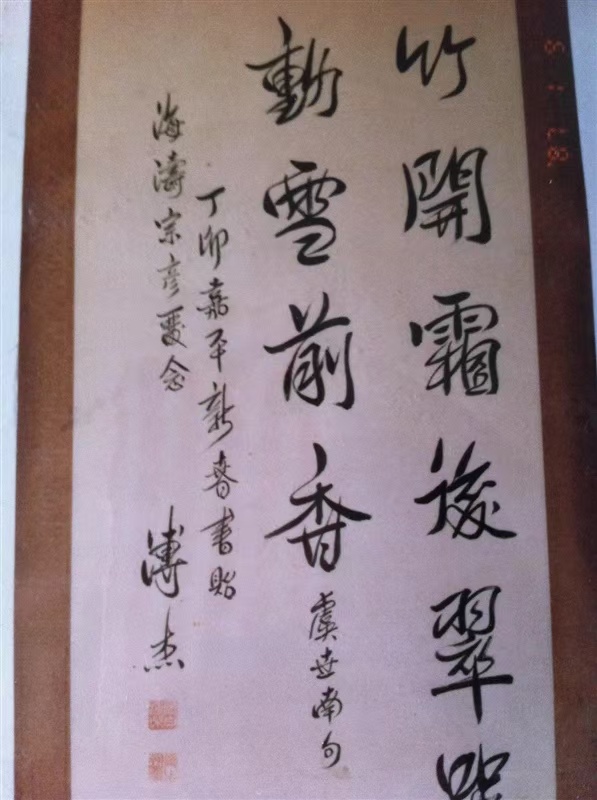 竹開霜後翠
動雪前香
虞世南句
丁卯嘉平新春書貽
海濤宗彦愛念
溥杰